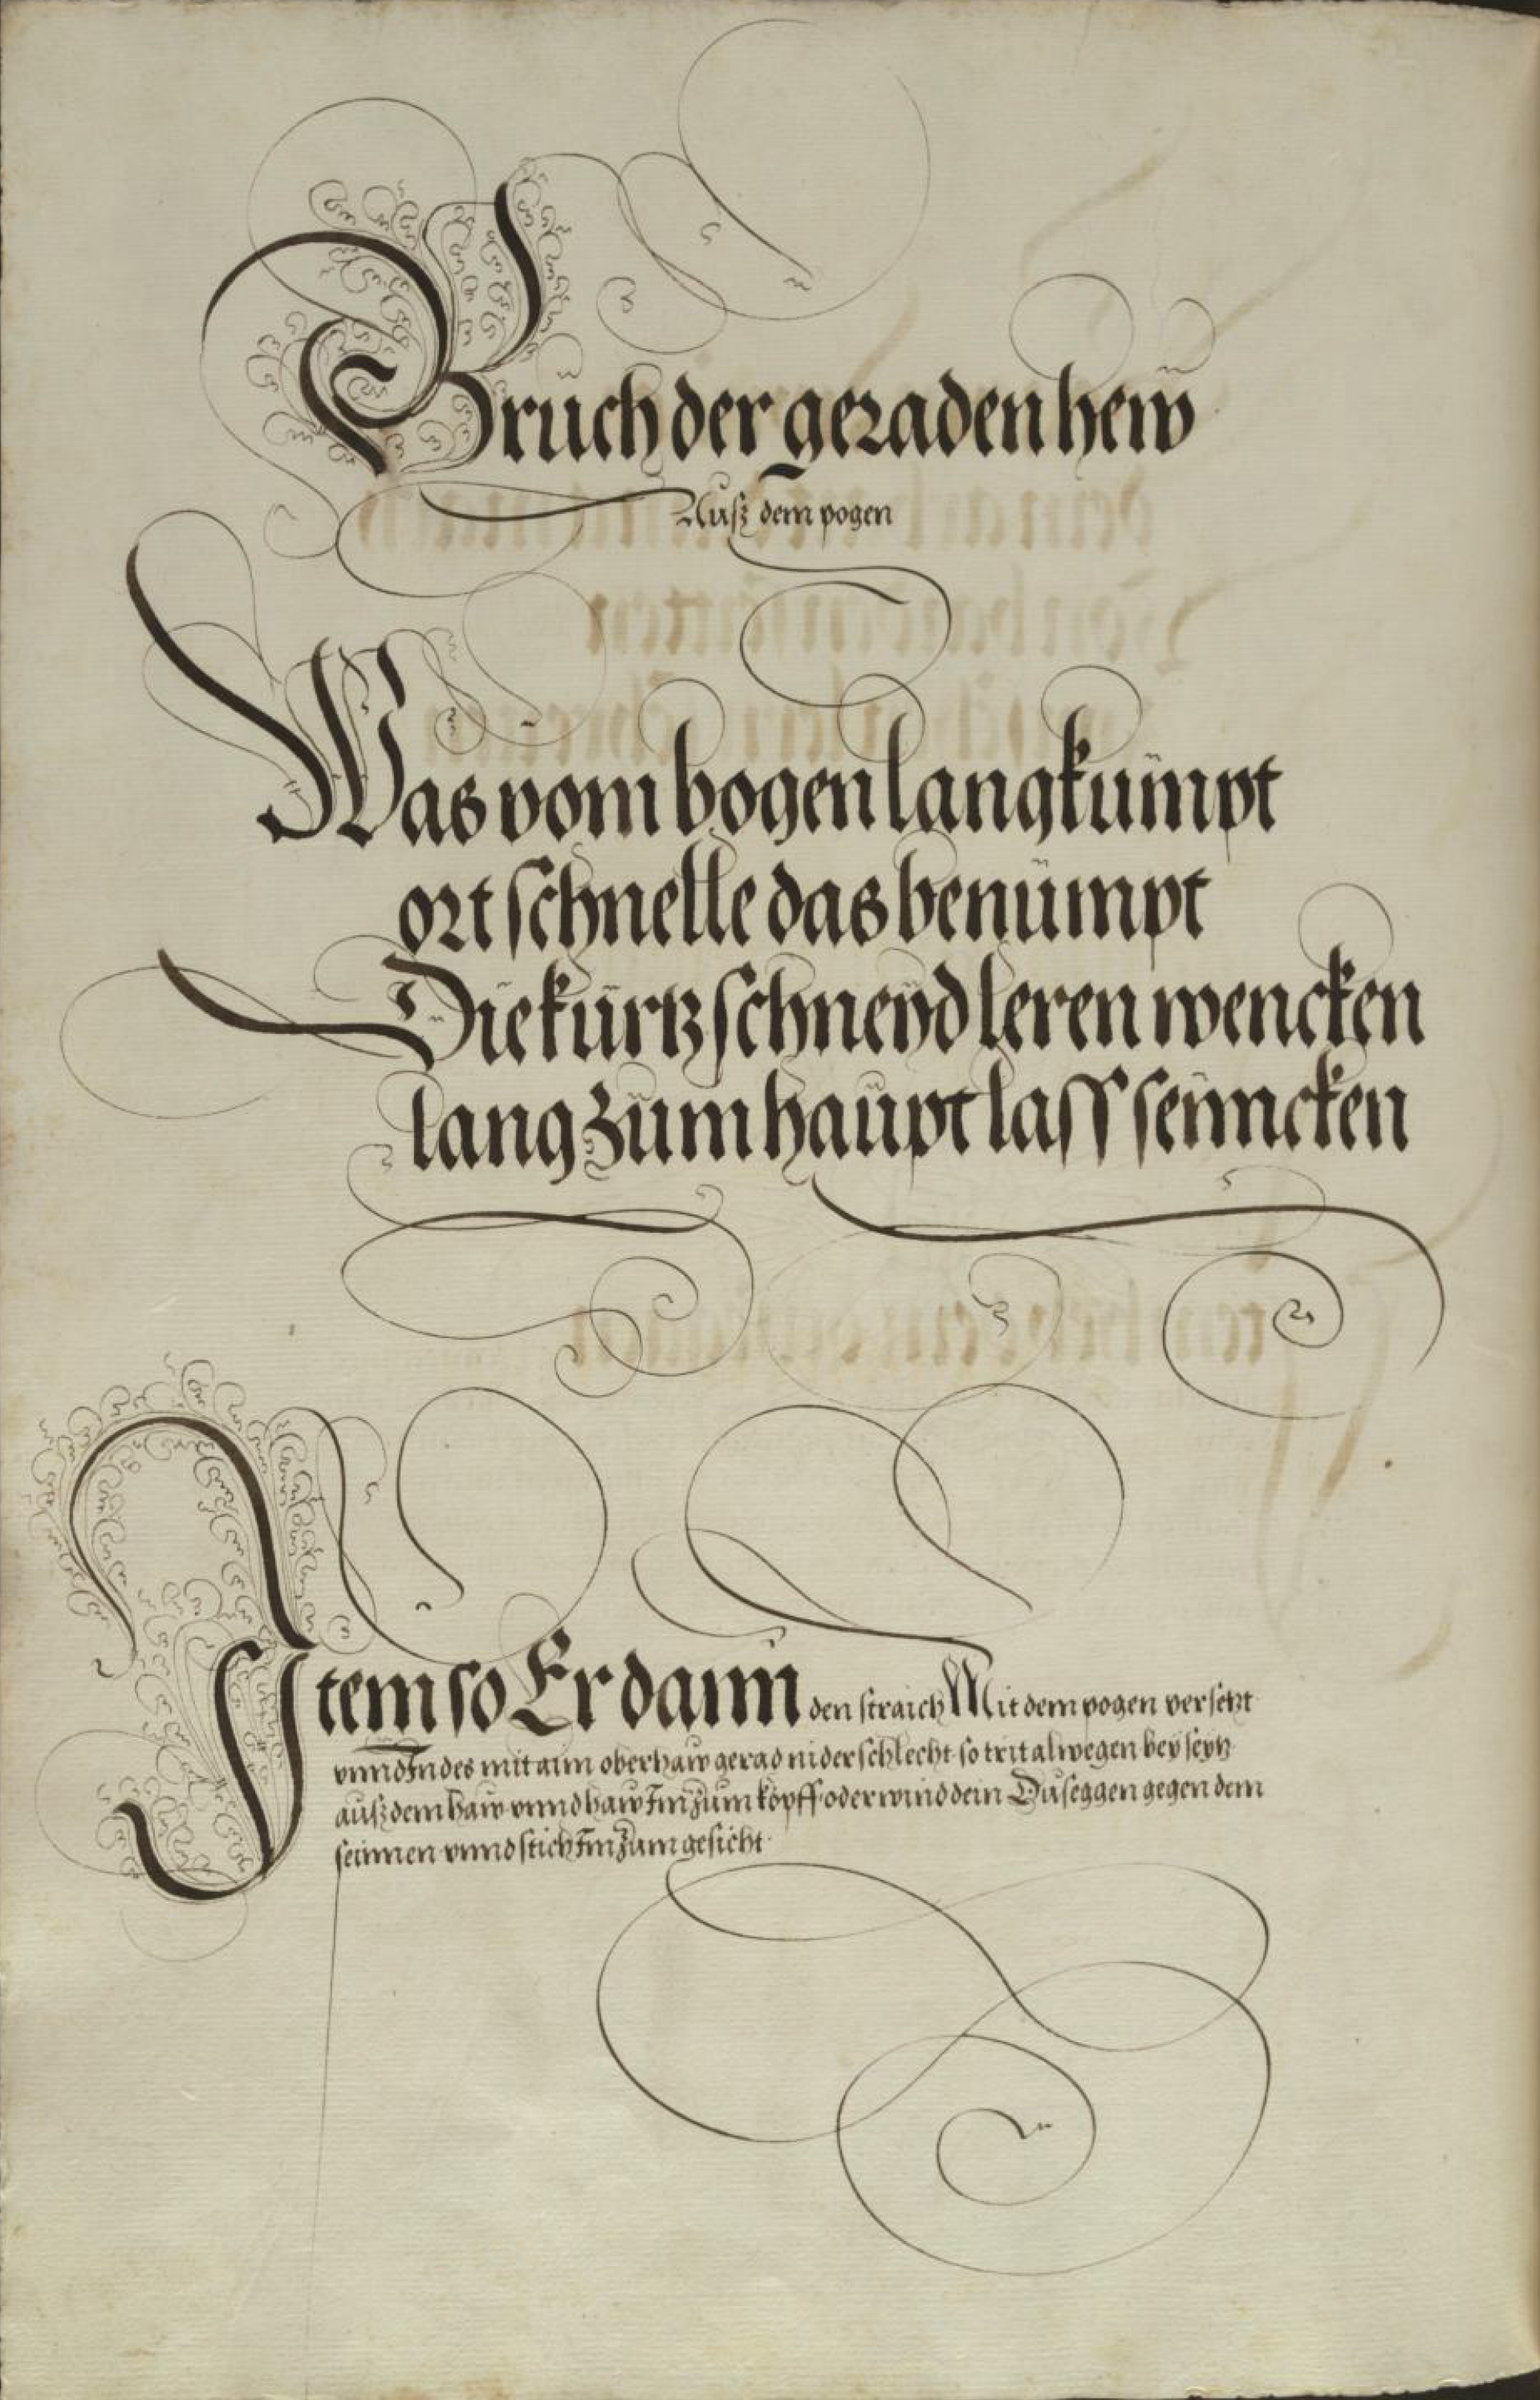 Bruch der geraden hew
Auß dem pogen
Was vom bogen lang kumpt
ort schnelle das benumpt
Die kurtz schneyd leren wencken
lang zum haupt lass seinncken
Item so Er dann den straich Mit dem pogen versetzt
vnnd Indes mit aim oberhaw gerad nider schlecht so trit alwegen bey seytz
auß dem haw vnnd haw Im zum kopff oder wind dein Duseggen gegen dem
seinnen vnnd stich Im zum gesicht